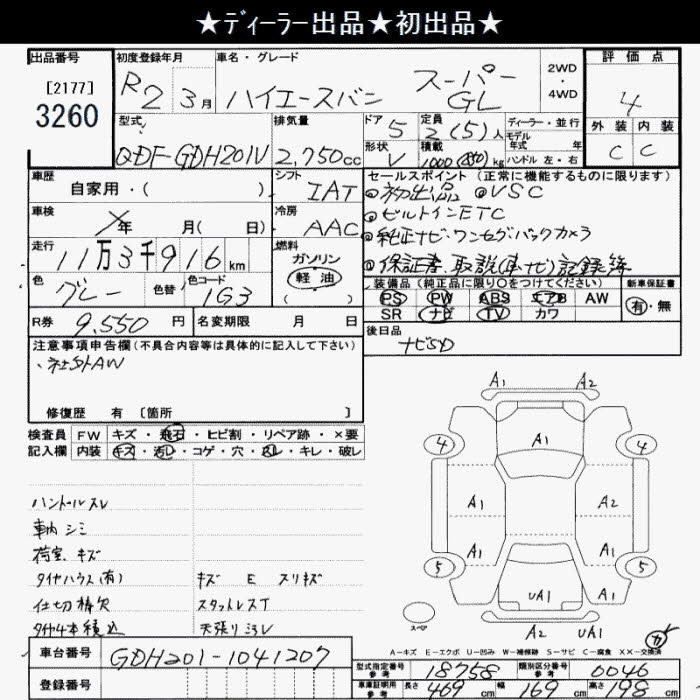 ★ディーラー出品★初出品★
出品番号
[2177]
3260
初度登録年月
R2 3月
車名・グレード
ハイエースバン スーパーGL
2WD・4WD
評価点
4
外装 内装
C C
型式
QDF-GDH201V
排気量
2,750cc
ドア 5
形状 V
定員 2(5)人
積載 1000(850)kg
ディーラー・並行
モデル年式 年
ハンドル 左・右
車歴
自家用・( )
シフト
IAT
車検
年 月(日)
冷房
AAC
走行
11万3千916km
燃料
ガソリン
軽油
( )
色
グレー
色替
色コード
1G3
R券 9,550円
名変期限 月 日
セールスポイント(正常に機能するものに限ります)
◎初出品 ◎VSC
◎ビルトインETC
◎純正ナビ・ワンセグ・バックカメラ
◎保証書、取説(車ナビ)記録簿
装備品(純正品に限り○をつけてください)
PS PW ABS エアB AW
SR ナビ TV カワ
新車保証書
有・無
後日品
ナビSD
注意事項申告欄(不具合内容等は具体的に記入して下さい)
・社外AW
修復歴 有〔箇所 〕
検査員記入欄
FW キズ・飛石・ヒビ割・リペア跡・×要
内装 キズ・汚レ・コゲ・穴・スレ・キレ・破レ
ハンドルスレ
車内シミ
荷室キズ
タイヤハウス(有) キズ E スリキズ
仕切棒欠 スタットレスT
タイヤ4本積込 天張りヨゴレ
A1 A2
A1
4 4
A1 A2
A1 A1
5 5
UA1
スペア
A2 UA1
カ
A-キズ E-エクボ U-凹み W-補修跡 S-サビ C-腐食 XX-交換済
車台番号 GDH201-1041207
登録番号
型式指定番号 参考 18758
類別区分番号 参考 0046
車庫証明用 参考 長さ 469cm 幅 169cm 高さ 198cm